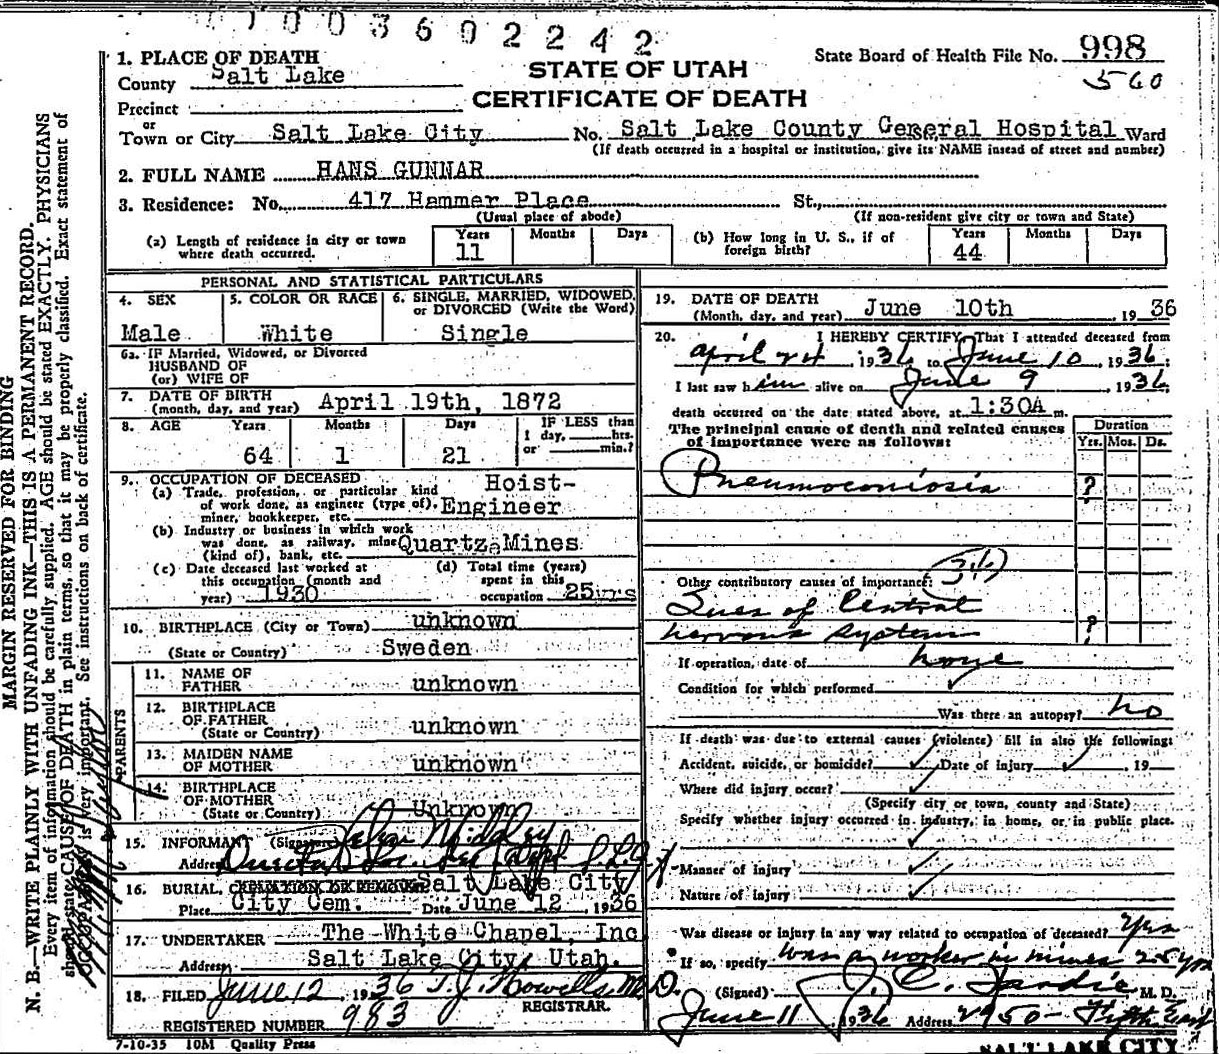 00360 2242
1. PLACE OF DEATH
County Salt Lake
STATE OF UTAH
State Board of Health File No. 998
560
Precinct
CERTIFICATE OF DEATH
or
Town or City Salt Lake City No. Salt Lake County General Hospital Ward
(If death occurred in a hospital or institution, give its NAME instead of street and number)
2. FULL NAME HANS GUNNAR
3. Residence: No. 417 Hammer Place St.,
(Usual place of abode) (If non-resident give city or town and State)
(a) Length of residence in city or town where death occurred. Years 11 Months Days
(b) How long in U. S., if of foreign birth? Years 44 Months Days
PERSONAL AND STATISTICAL PARTICULARS
4. SEX Male
5. COLOR OR RACE White
6. SINGLE, MARRIED, WIDOWED, or DIVORCED (Write the Word) Single
6a. IF Married, Widowed, or Divorced
HUSBAND OF
(or) WIFE OF
7. DATE OF BIRTH
(month, day, and year) April 19th, 1872
8. AGE Years 64 Months 1 Days 21
IF LESS than
1 day, hrs.
or min.?
9. OCCUPATION OF DECEASED
(a) Trade, profession, or particular kind
of work done, as engineer (type of),
miner, bookkeeper, etc. Hoist-Engineer
(b) Industry or business in which work
was done, as railway, mine
(kind of), bank, etc. Quartz Mines
(c) Date deceased last worked at
this occupation (month and
year) 1930
(d) Total time (years)
spent in this
occupation 25yrs
10. BIRTHPLACE (City or Town) unknown
(State or Country) Sweden
PARENTS
11. NAME OF
FATHER unknown
12. BIRTHPLACE
OF FATHER
(State or Country) unknown
13. MAIDEN NAME
OF MOTHER unknown
14. BIRTHPLACE
OF MOTHER
(State or Country) Unknown
15. INFORMANT (Signature)
Address
16. BURIAL, CREMATION OR REMOVAL Salt Lake City
Place City Cem. Date June 12, 1936
17. UNDERTAKER The White Chapel, Inc
Address Salt Lake City, Utah.
18. FILED June 12, 1936 T. J. Howells M.D.
REGISTRAR.
REGISTERED NUMBER 983
7-10-35 10M Quality Press
19. DATE OF DEATH
(Month, day, and year) June 10th, 1936
20. I HEREBY CERTIFY, That I attended deceased from
April 24, 1936 to June 10, 1936.
I last saw him alive on June 9 1936
death occurred on the date stated above, at 1:30A m.
The principal cause of death and related causes
of importance were as follows:
Duration
Yrs. Mos. Ds.
Pneumoconiosis ?
Other contributory causes of importance:
Lues of Central
nervous system ?
If operation, date of none
Condition for which performed
Was there an autopsy? no
If death was due to external causes (violence) fill in also the following:
Accident, suicide, or homicide? Date of injury , 19
Where did injury occur?
(Specify city or town, county and State)
Specify whether injury occurred in industry, in home, or in public place.
Manner of injury
Nature of injury
Was disease or injury in any way related to occupation of deceased? Yes
If so, specify Was a worker in mines 25 yrs
(Signed) J. C. M. D.
June 11 1936 Address 2950 - Fifth East
SALT LAKE CITY
MARGIN RESERVED FOR BINDING
N. B.—WRITE PLAINLY WITH UNFADING INK—THIS IS A PERMANENT RECORD.
Every item of information should be carefully supplied. AGE should be stated EXACTLY. PHYSICIANS
should state CAUSE OF DEATH in plain terms, so that it may be properly classified. Exact statement of
OCCUPATION is very important. See instructions on back of certificate.